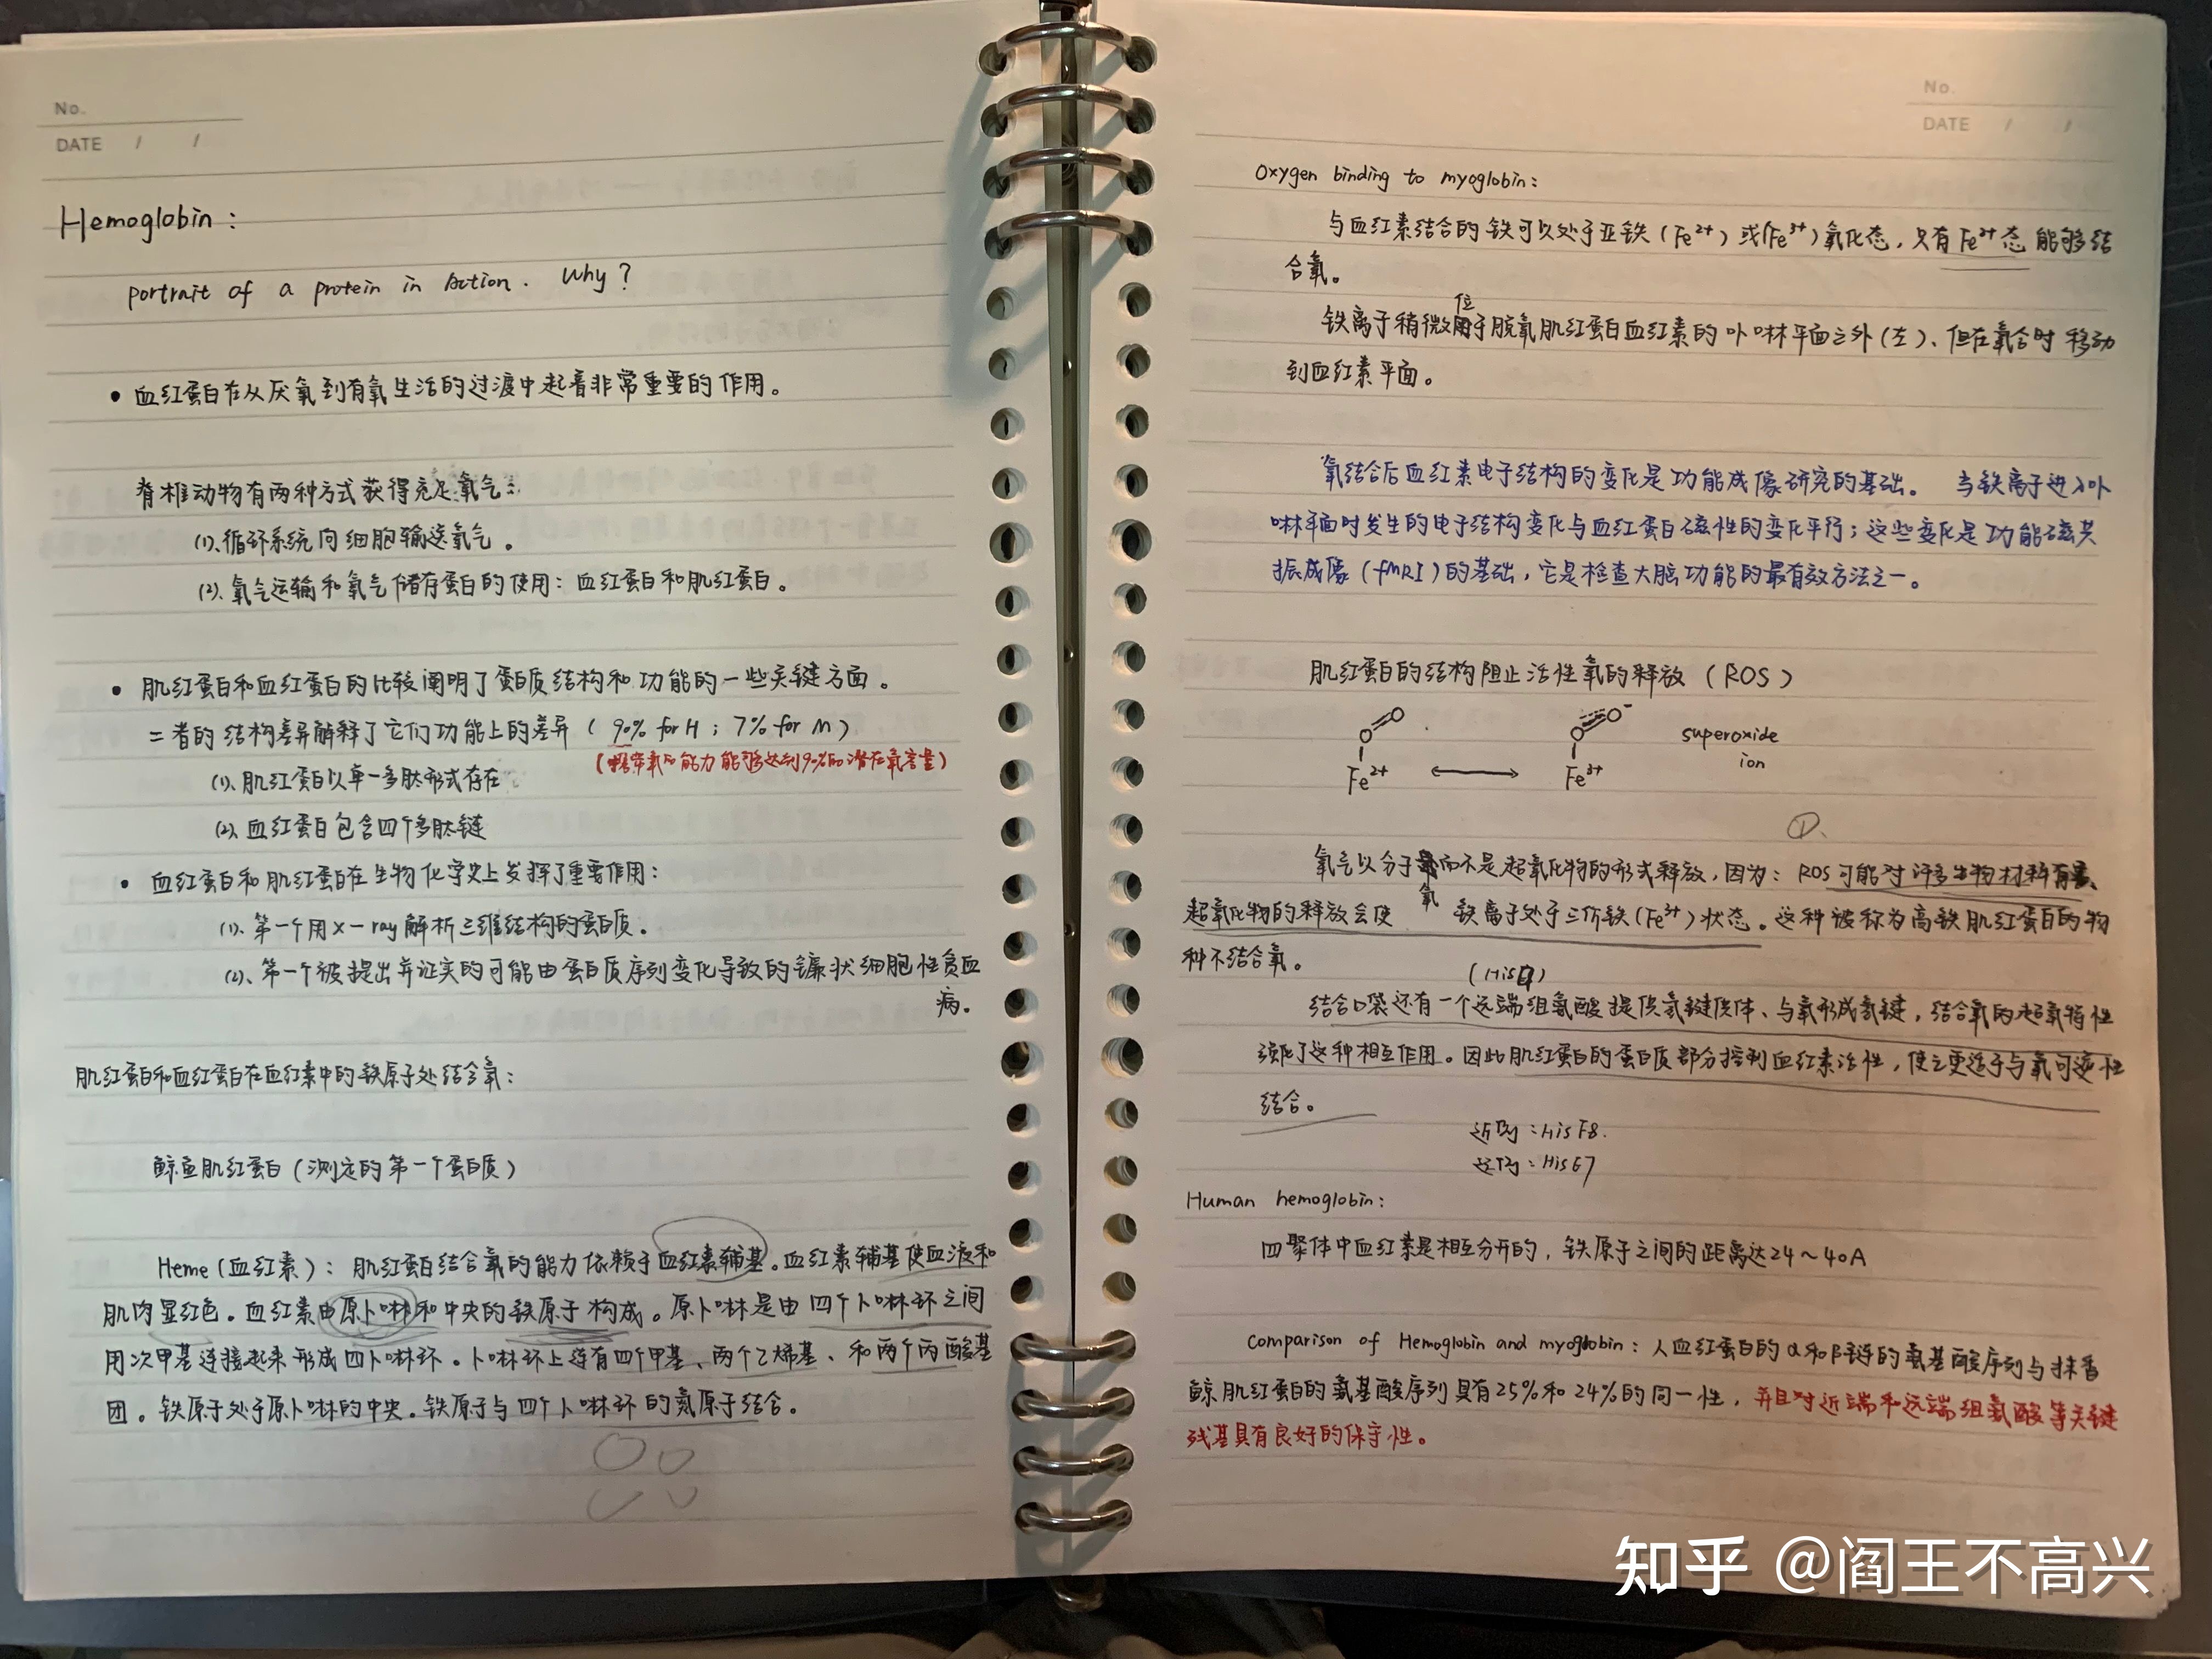 No.
DATE / /
Hemoglobin:
portrait of a protein in Action. Why?
• 血红蛋白在从厌氧到有氧生活的过渡中起着非常重要的作用。
脊椎动物有两种方式获得充足氧气:
(1)、循环系统向细胞输送氧气。
(2)、氧气运输和氧气储存蛋白的使用: 血红蛋白和肌红蛋白。
• 肌红蛋白和血红蛋白的比较阐明了蛋白质结构和功能的一些关键方面。
二者的结构差异解释了它们功能上的差异 ( 90% for H ; 7% for M )
氧的能力能够达到90%的潜在氧含量)
(1)、肌红蛋白以单一多肽形式存在
(2)、血红蛋白包含四个多肽链
• 血红蛋白和肌红蛋白在生物化学史上发挥了重要作用:
(1)、第一个用x-ray解析三维结构的蛋白质。
(2)、第一个被提出并证实的可能由蛋白质序列变化导致的镰状细胞性贫血
病。
肌红蛋白和血红蛋白在血红素中的铁原子处结合氧:
鲸鱼肌红蛋白 (测定的第一个蛋白质)
Heme (血红素): 肌红蛋白结合氧的能力依赖于血红素辅基。血红素辅基使血液和
肌肉显红色。血红素由原卟啉和中央的铁原子构成。原卟啉是由四个卟啉环之间
用次甲基连接起来形成四卟啉环。卟啉环上连有四个甲基、两个乙烯基、和两个丙酸基
团。铁原子处于原卟啉的中央。铁原子与四个卟啉环的氮原子结合。
No.
DATE / /
Oxygen binding to myoglobin:
与血红素结合的铁可以处于亚铁 (Fe²⁺) 或(Fe³⁺)氧化态, 只有Fe²⁺态能够结
合氧。
铁离子稍微位于脱氧肌红蛋白血红素的卟啉平面之外(左)、但在氧合时移动
到血红素平面。
氧结合后血红素电子结构的变化是功能成像研究的基础。 当铁离子进入卟
啉平面时发生的电子结构变化与血红蛋白磁性的变化平行; 这些变化是功能磁共
振成像 (fMRI) 的基础, 它是检查大脑功能的最有效方法之一。
肌红蛋白的结构阻止活性氧的释放 (ROS)
O=O O=O⁻ superoxide
ion
Fe²⁺ ⟷ Fe³⁺
①、
氧气以分子氧而不是超氧化物的形式释放, 因为: ROS可能对许多生物材料有害、
超氧化物的释放会使 铁离子处于三价铁(Fe³⁺)状态。这种被称为高铁肌红蛋白的物
种不结合氧。
结合口袋还有一个远端组氨酸提供氢键供体、与氧形成氢键, 结合氧的超氧特性
强化了这种相互作用。因此肌红蛋白的蛋白质部分控制血红素活性, 使之更适于与氧可逆性
结合。
近的: His F8.
远的: His E7
Human hemoglobin:
四聚体中血红素是相互分开的, 铁原子之间的距离达24~40A
Comparison of Hemoglobin and myoglobin: 人血红蛋白的α和β链的氨基酸序列与抹香
鲸肌红蛋白的氨基酸序列具有25%和24%的同一性, 并且对近端和远端组氨酸等关键
残基具有良好的保守性。
知乎 @阎王不高兴